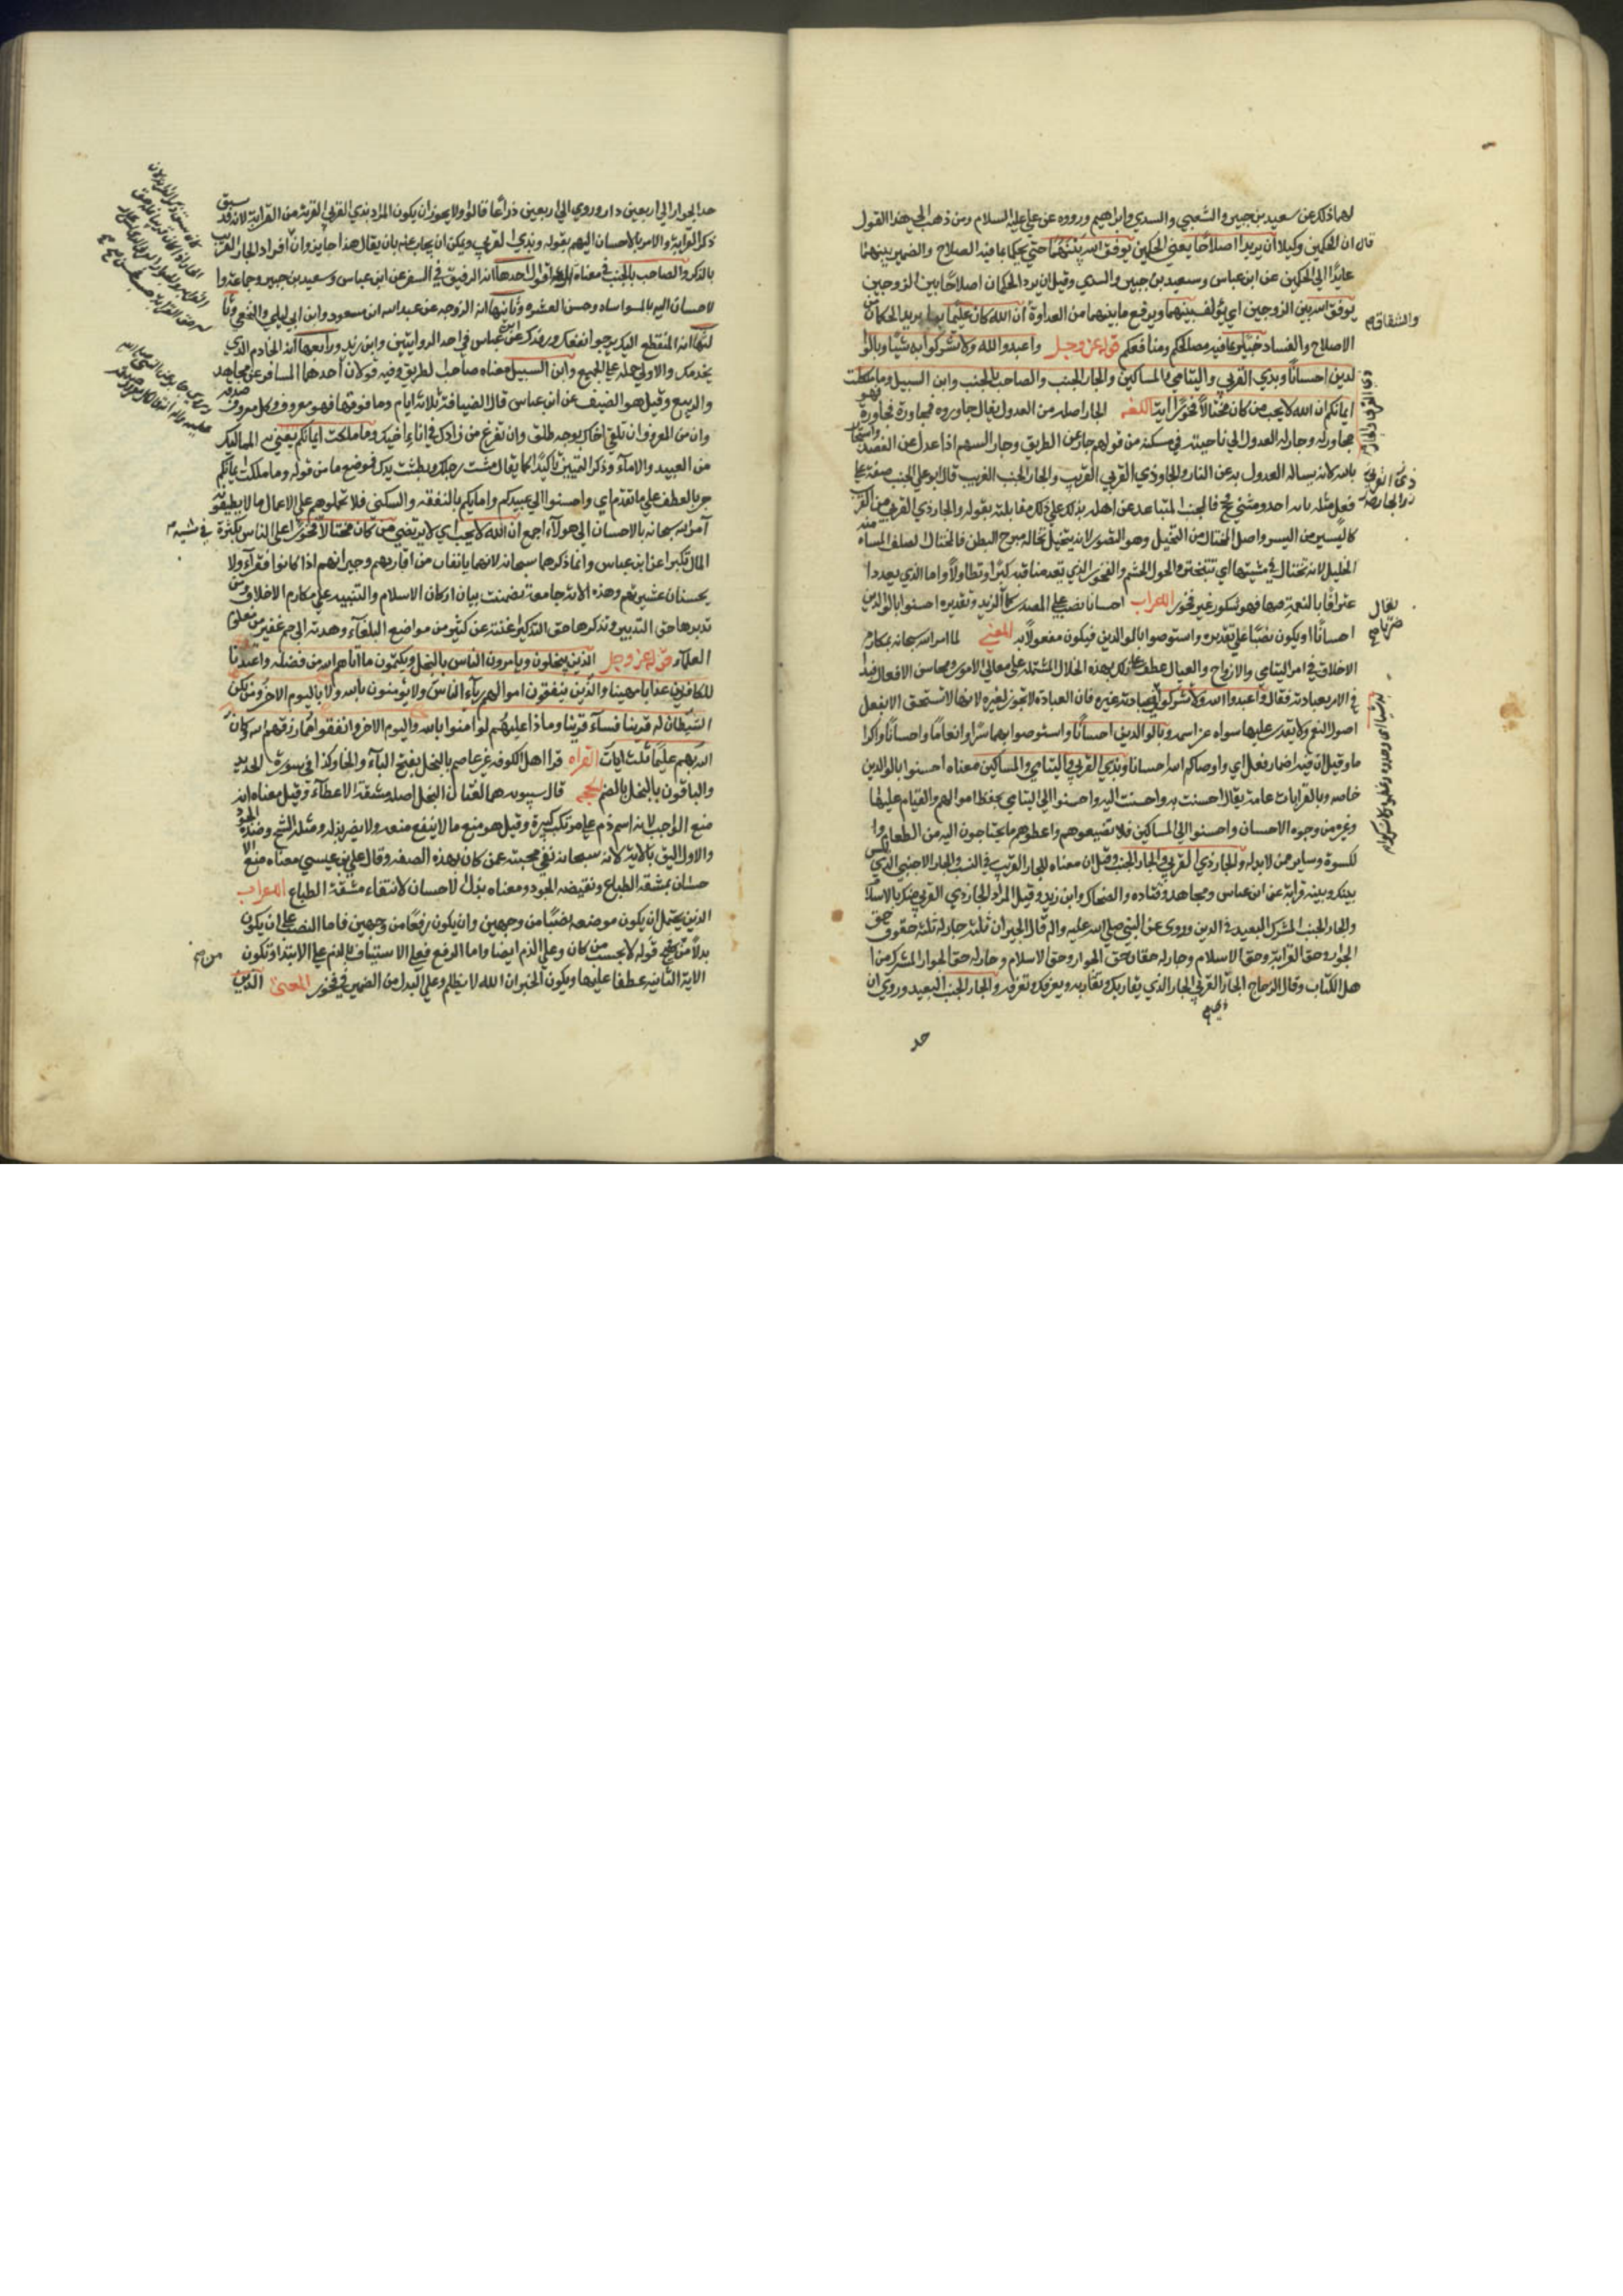 لهما ذلك عن سعيد بن جبير والشعبي والسدي وابراهيم ورووه عن علي عليه السلام ومن ذهب الى هذا القول
قال ان الحكمين وكيلان ان يريدا اصلاحًا يعني الحكمين يوفق الله بينهما حتى يحكما بما فيه الصلاح والضمير بينهما
عايدًا الى الحكمين عن ابن عباس وسعيد بن جبير والسدي وقيل ان يرد الحكمان اصلاحًا بين الزوجين
يوفق الله بين الزوجين اي يؤلف بينهما ويرفع ما بينهما من العداوة ان الله كان عليمًا بما يريد الحكمان من
والشقاق صح
الاصلاح والفساد خبيرًا بما فيه مصالحكم ومنافعكم قوله عز وجل واعبدوا الله ولا تشركوا به شيئًا وبالوا
لدين احسانًا وبذي القربى واليتامى والمساكين والجار الجنب والصاحب بالجنب وابن السبيل وما ملكت
ايمانكم ان الله لا يحب من كان مختالًا فخورًا اية اللغه الجار اصله من العدول يقال جاوره مجاورة فهو
مجاور له وجار له لعدوله الى ناحيته في مسكنه من قولهم جار عن الطريق وجار السهم اذا عدل عن القصد واستجار
بالله لانه يساله العدول به عن النار والجار ذي القربى القريب والجار الجنب الغريب قال ابو علي الجنب صفة على
ذي القربى والجار
فعل مثله ناقة احد ومشي سجح فالجنب المتباعد عن اهله يدلك على ذلك مقابلته بقوله والجار ذي القربى من القرب
كاليسرى من اليسر واصل المختال من التخيل وهو التصور لانه يتخيل بحاله مرح البطر فالمختال الصلف التياه ومنه
الخيل لانه تختال في مشيتها اي تتبختر والخول الحشم والفخور الذي يعدد مناقبه كبرًا وتطاولًا واما الذي يعددها
اعترافًا بالنعمة فيها فهو شكور غير فخور الاعراب احسانًا نصب على المصدر كما تقول ضربًا لزيد وتقديره احسنوا بالوالدين
احسانًا ويكون نصبًا على تقديره واستوصوا بالوالدين فيكون مفعولًا به المعنى لما امر الله سبحانه بمكارم
الاخلاق في امر اليتامى والازواج والعيال عطف على ذلك بهذه الخلال المشتملة على معالي الامور ومحاسن الافعال فبدا
في الامر بعبادته فقال واعبدوا الله ولا تشركوا في عبادته غيره فان العبادة لا تجوز لغيره لانها لا تستحق الا بفعل
اصول النعم ولا يقدر عليها سواه عز اسمه وبالوالدين احسانًا واستوصوا بهما برًا وانعامًا واحسانًا واكرا
ما وقيل ان فيه اضمار فعل اي واوصاكم الله احسانًا وبذي القربى واليتامى والمساكين معناه احسنوا بالوالدين
خاصه وبالقرابات عامة يقال احسنت به واحسنت اليه واحسنوا الى اليتامى بحفظ اموالهم والقيام عليها
وغيره من وجوه الاحسان واحسنوا الى المساكين فلا تضيعوهم واعطوهم ما يحتاجون اليه من الطعام وا
لكسوة وساير ما لا بد منه والجار ذي القربى والجار الجنب وقيل ان معناه الجار القريب في النسب والجار الاجنبي الذي ليس
بينك وبينه قرابة عن ابن عباس ومجاهد وقتاده والضحاك وابن زيد وقيل المراد الجار ذي القربى منك بالاسلام
والجار الجنب المشرك البعيد في الدين وروى عن النبي صلى الله عليه واله قال الجيران ثلثة جار له ثلثة حقوق حق
الجوار وحق القرابة وحق الاسلام وجار له حقان حق الجوار وحق الاسلام وجار له حق الجوار المشرك من ا
هل الكتاب وقال الزجاج الجار القربى الجار الذي يقاربك وتقاربه ويعرفك وتعرفه والجار الجنب البعيد وروي ان
حد
حد الجوار الى اربعين دارا وروي الى اربعين ذراعًا قالوا ولا يجوز ان يكون المراد بذي القربى القريب من القرابة لانه قد سبق
ذكر القرابة والامر بالاحسان اليهم بقوله وبذي القربى ويمكن ان يجاب عنه بان يقال هذا جايز وان افراد الجار القريب
بالذكر والصاحب بالجنب في معناه اقوال احدها انه الرفيق في السفر عن ابن عباس وسعيد بن جبير وجماعة وا
لاحسان اليه بالمواساه وحسن العشره وثانيها انه الزوجه عن عبد الله ابن مسعود وابن ابي ليلى والنخعي وثا
لثها انه المنقطع اليك يرجو نفعك ورفدك عن ابن عباس في احد الروايتين وابن زيد ورابعها انه الخادم الذي
يخدمك والاولى حمله على الجميع وابن السبيل معناه صاحب الطريق وفيه قولان احدهما المسافر عن مجاهد
والربيع وقيل هو الضيف عن ابن عباس قال الضيافة ثلاثة ايام وما فوقها فهو معروف وكل معروف صدقه
وان من المعروف ان تلقى اخاك بوجه طلق وان تفرغ من دلوك في اناء اخيك وما ملكت ايمانكم يعني به المماليك
من العبيد والاماء وذكر اليمين تاكيدًا كما يقال مشت رجلك وبطشت يدك فموضع ما من قوله وما ملكت ايمانكم
جر بالعطف على ما تقدم اي واحسنوا الى عبيدكم وامايكم بالنفقه والسكنى فلا تحملوهم على الاعمال ما لا يطيقونه
امر الله سبحانه بالاحسان الى هولاء اجمع ان الله لا يحب اي لا يرتضي من كان مختالًا فخورًا على الناس بكثرة
في مشيته
المال تكبرا عن ابن عباس وانما ذكرهما سبحانه لانهما يانفان من اقاربهم وجيرانهم اذا كانوا فقراء ولا
يحسنان عشيرتهم وهذه الاية جامعة تضمنت بيان اركان الاسلام والتنبيه على مكارم الاخلاق ومن
تدبرها حق التدبر وتذكرها حق التذكر اغنته عن كثير من مواضع البلغاء وهدته الى جم غفير من علوم
العلماء قوله عز وجل الذين يبخلون ويامرون الناس بالبخل ويكتمون ما اتاهم الله من فضله واعتدنا
للكافرين عذابا مهينا والذين ينفقون اموالهم رياء الناس ولا يؤمنون بالله ولا باليوم الاخر ومن يكن
الشيطان له قرينا فساء قرينا وماذا عليهم لو امنوا بالله واليوم الاخر وانفقوا مما رزقهم الله وكان
الله بهم عليمًا ثلث ايات القراه قرا اهل الكوفه غير عاصم بالبخل بفتح الباء والخا وكذا في سورة الحديد
والباقون بالبخل بالضم الحجه قال سيبويه هما لغتان البخل اصله مشقة الاعطاء وقيل معناه انه
منع الواجب لانه اسم ذم على مرتكب كبيرة وقيل هو منع ما لا ينفع منعه ولا يضر بذله ومثله الشح وضده الجود
والاول اليق بالاية لانه سبحانه نفى محبته عمن كان بهذه الصفه وقال علي بن عيسى معناه منع الا
حسان بمشقة الطباع ونقيضه الجود ومعناه بذل الاحسان لانتفاء مشقة الطباع الاعراب
الذين يحتمل ان يكون موضعه نصبًا من وجهين وان يكون رفعًا من وجهين فاما النصب فعلى ان يكون
بدلًا من قوله لا يحب من كان وعلى الذم ايضا واما الرفع فعلى الاستيناف بالذم على الابتدا وتكون
من صح
الاية الثانيه عطفا عليها ويكون الخبر ان الله لا يظلم وعلى البدل من الضمير في فخور المعنى الذين